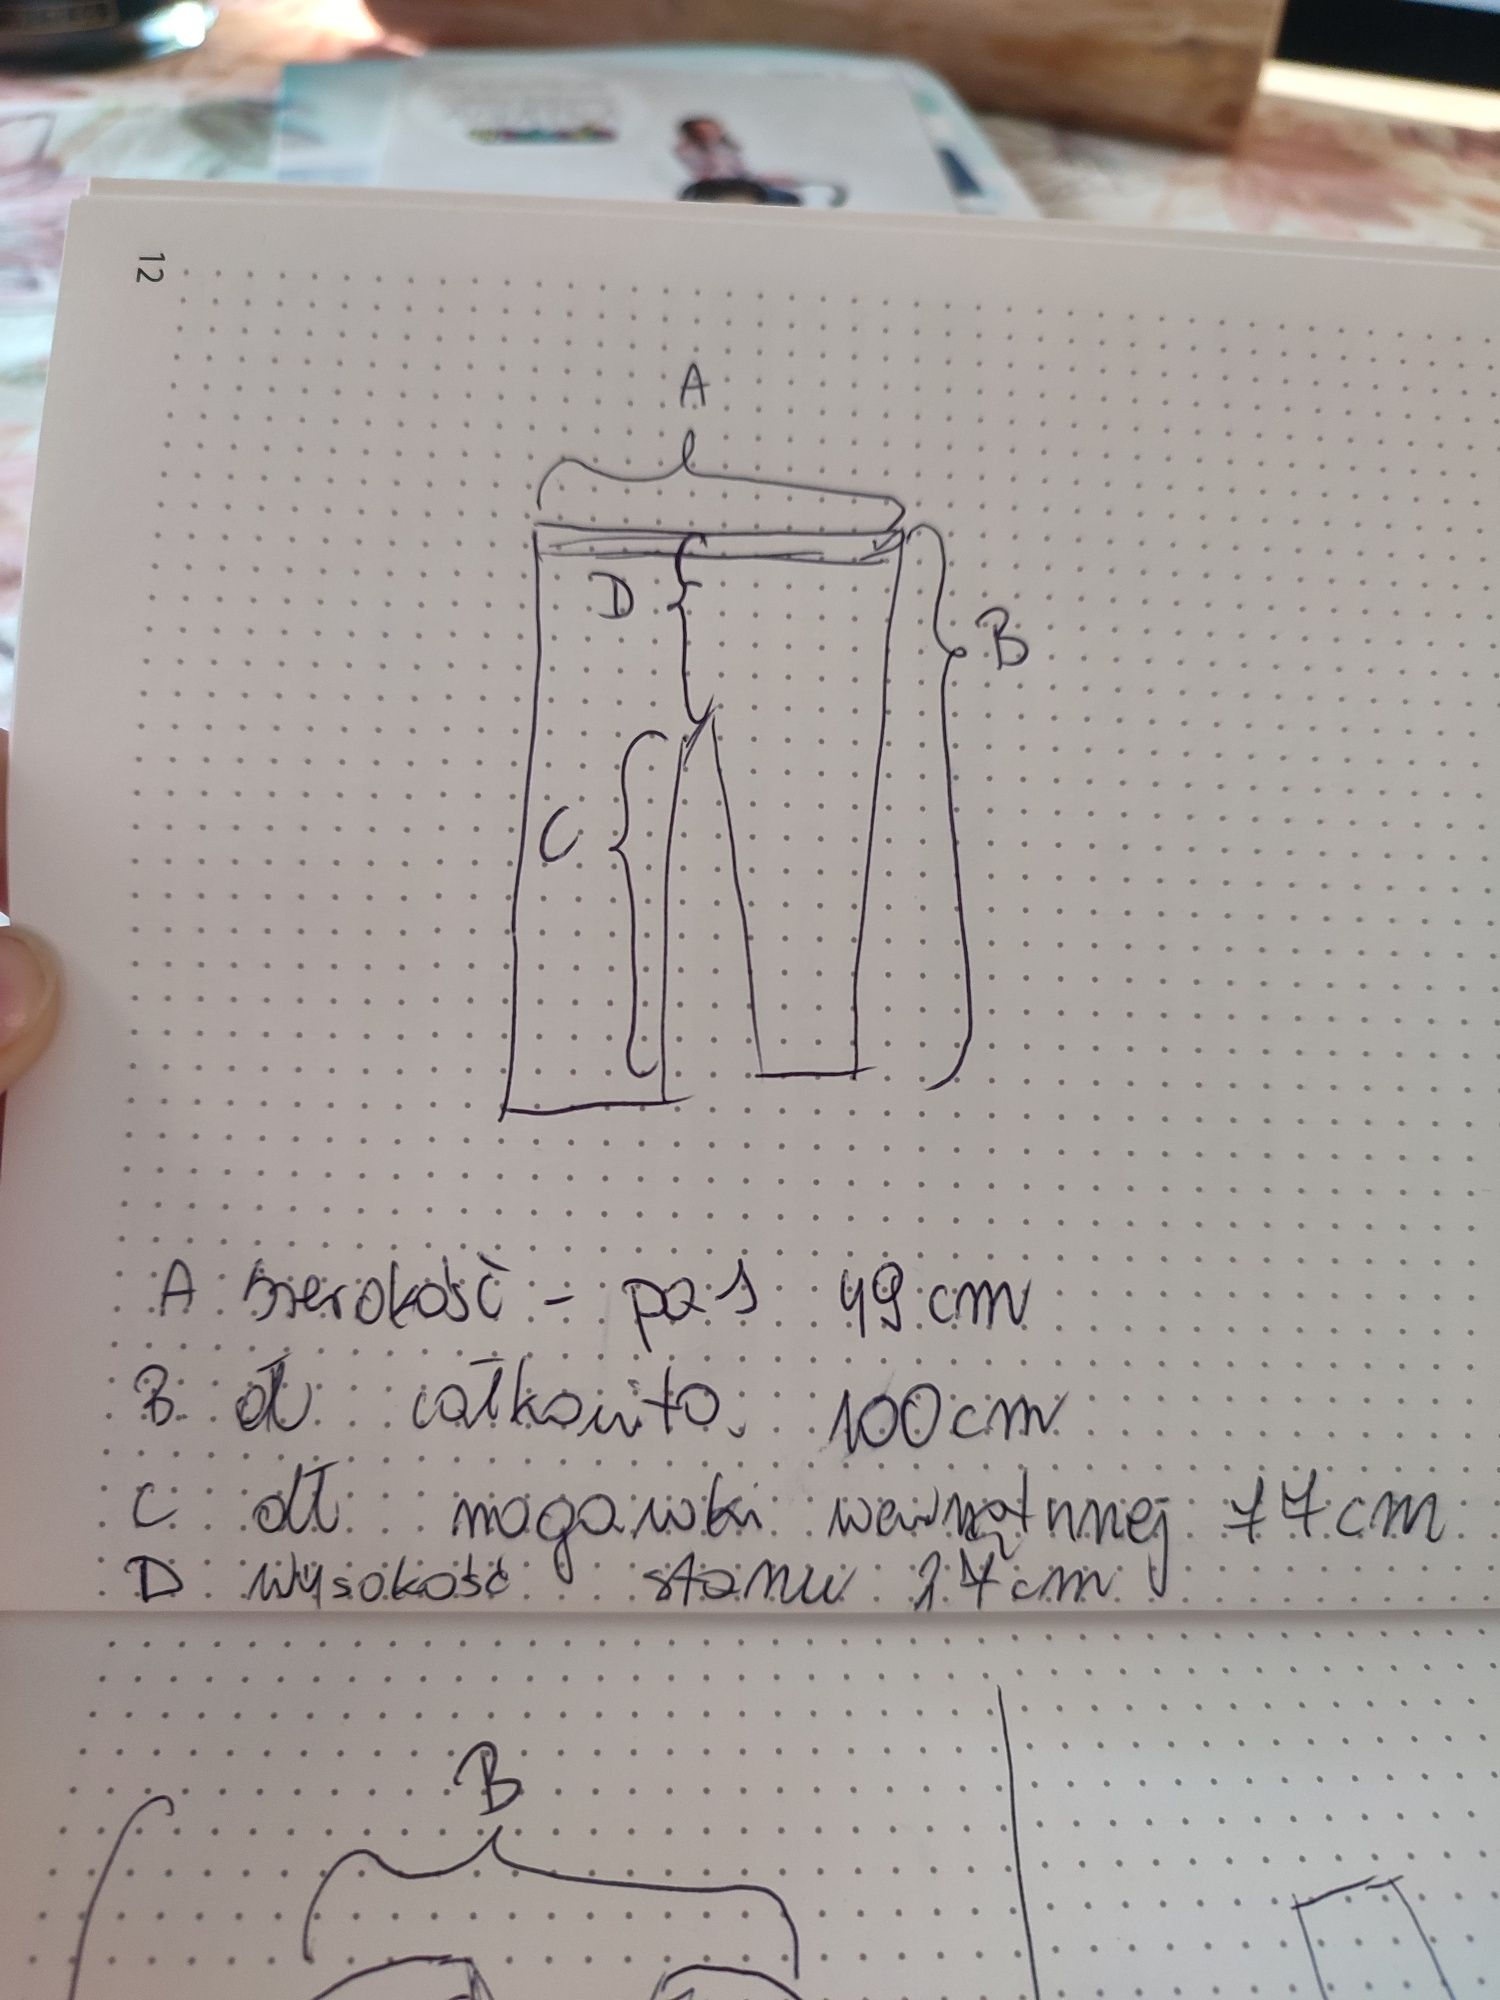 12
A
D
B
C
A szerokość - pas 49 cm
B dł całkowita 100 cm
C dł nogawki wewnętrznej 77 cm
D wysokość stanu 27 cm
B